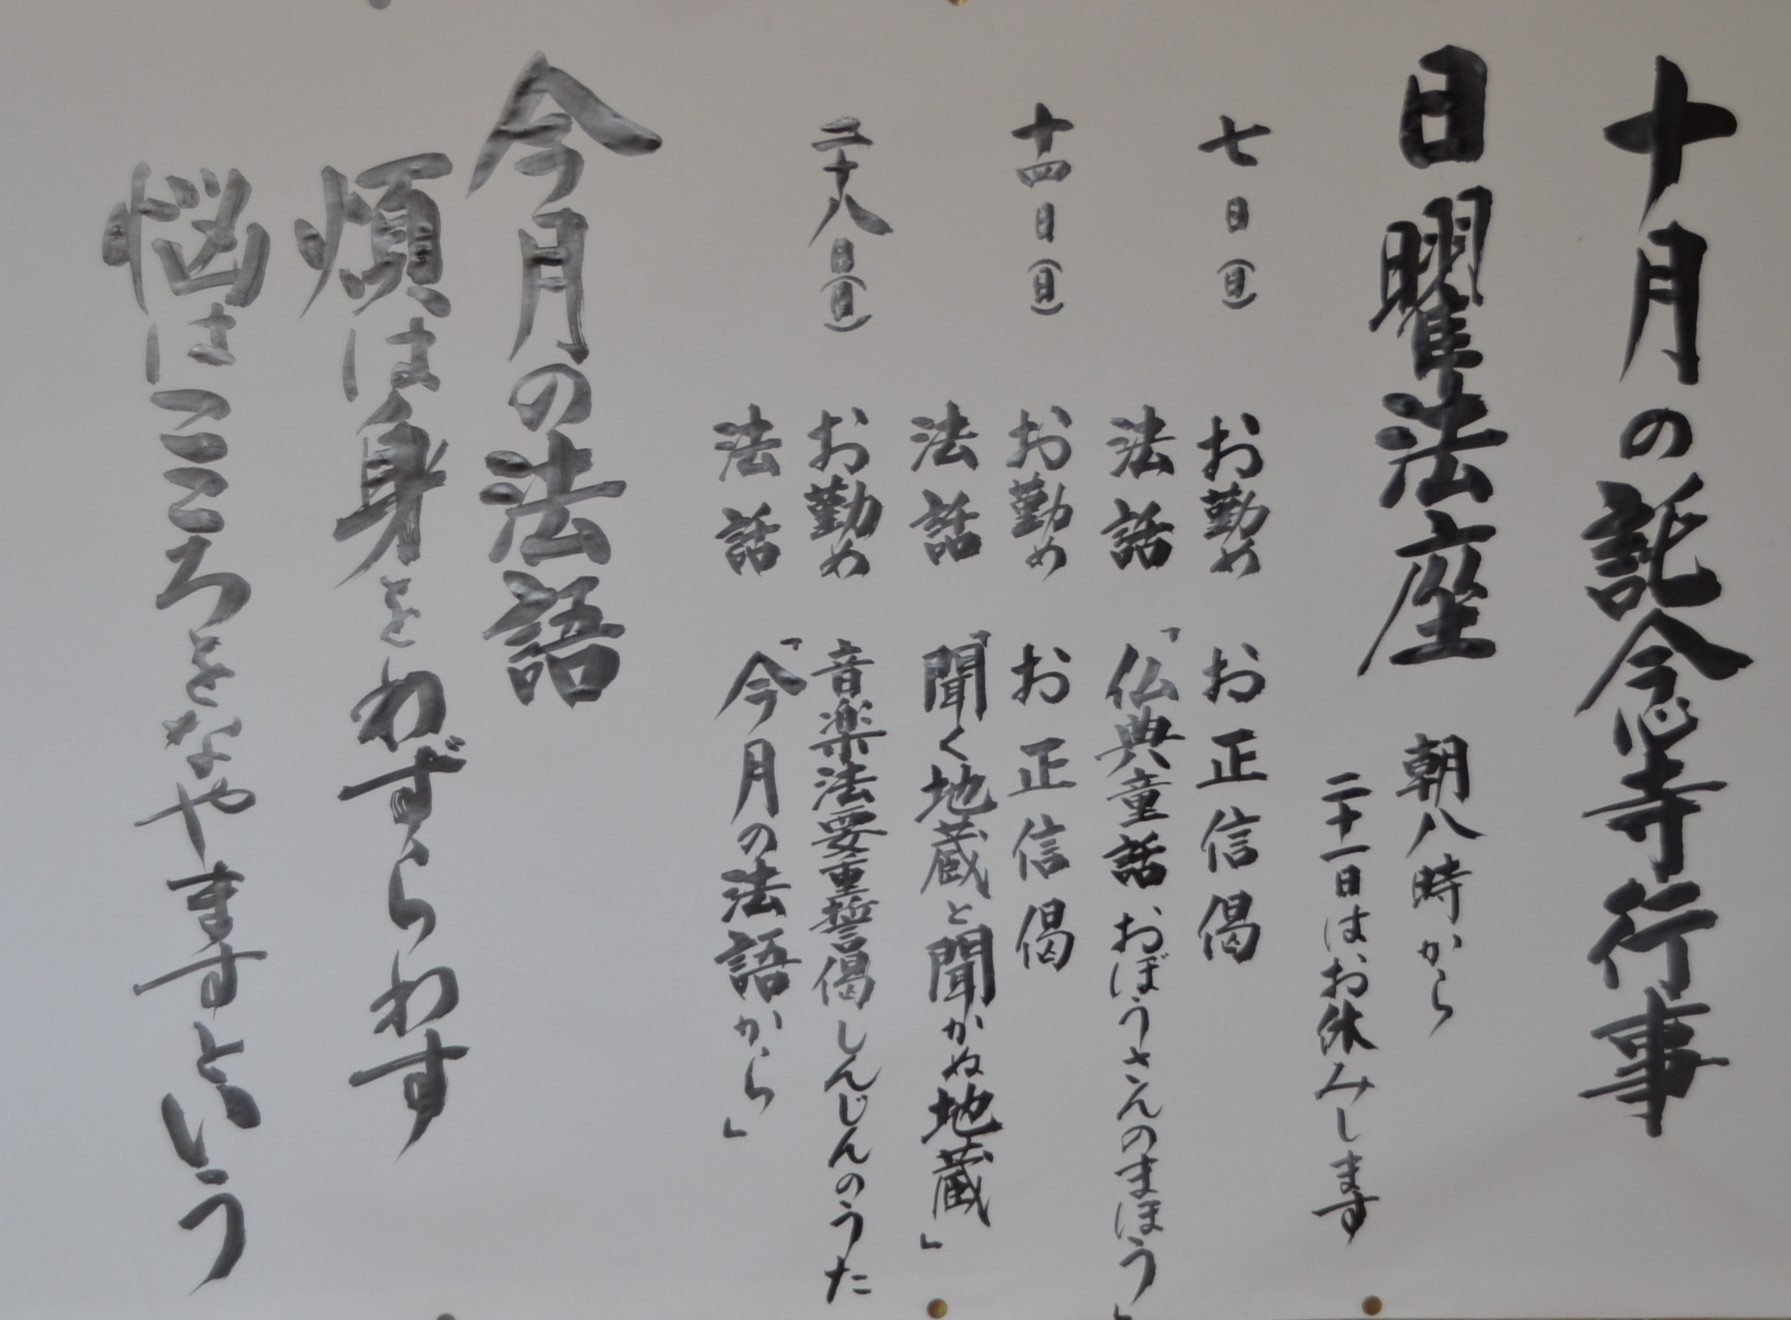 十月の託念寺行事
日曜法座 朝八時から
二十一日はお休みします
七日(日) お勤め お正信偈
法話 「仏典童話 おぼうさんのまほう」
十四日(日) お勤め お正信偈
法話 「聞く地蔵と聞かぬ地蔵」
二十八日(日) お勤め 音楽法要重誓偈 しんじんのうた
法話 「今月の法語から」
今月の法語
煩は身をわずらわす
悩はこころをなやますという